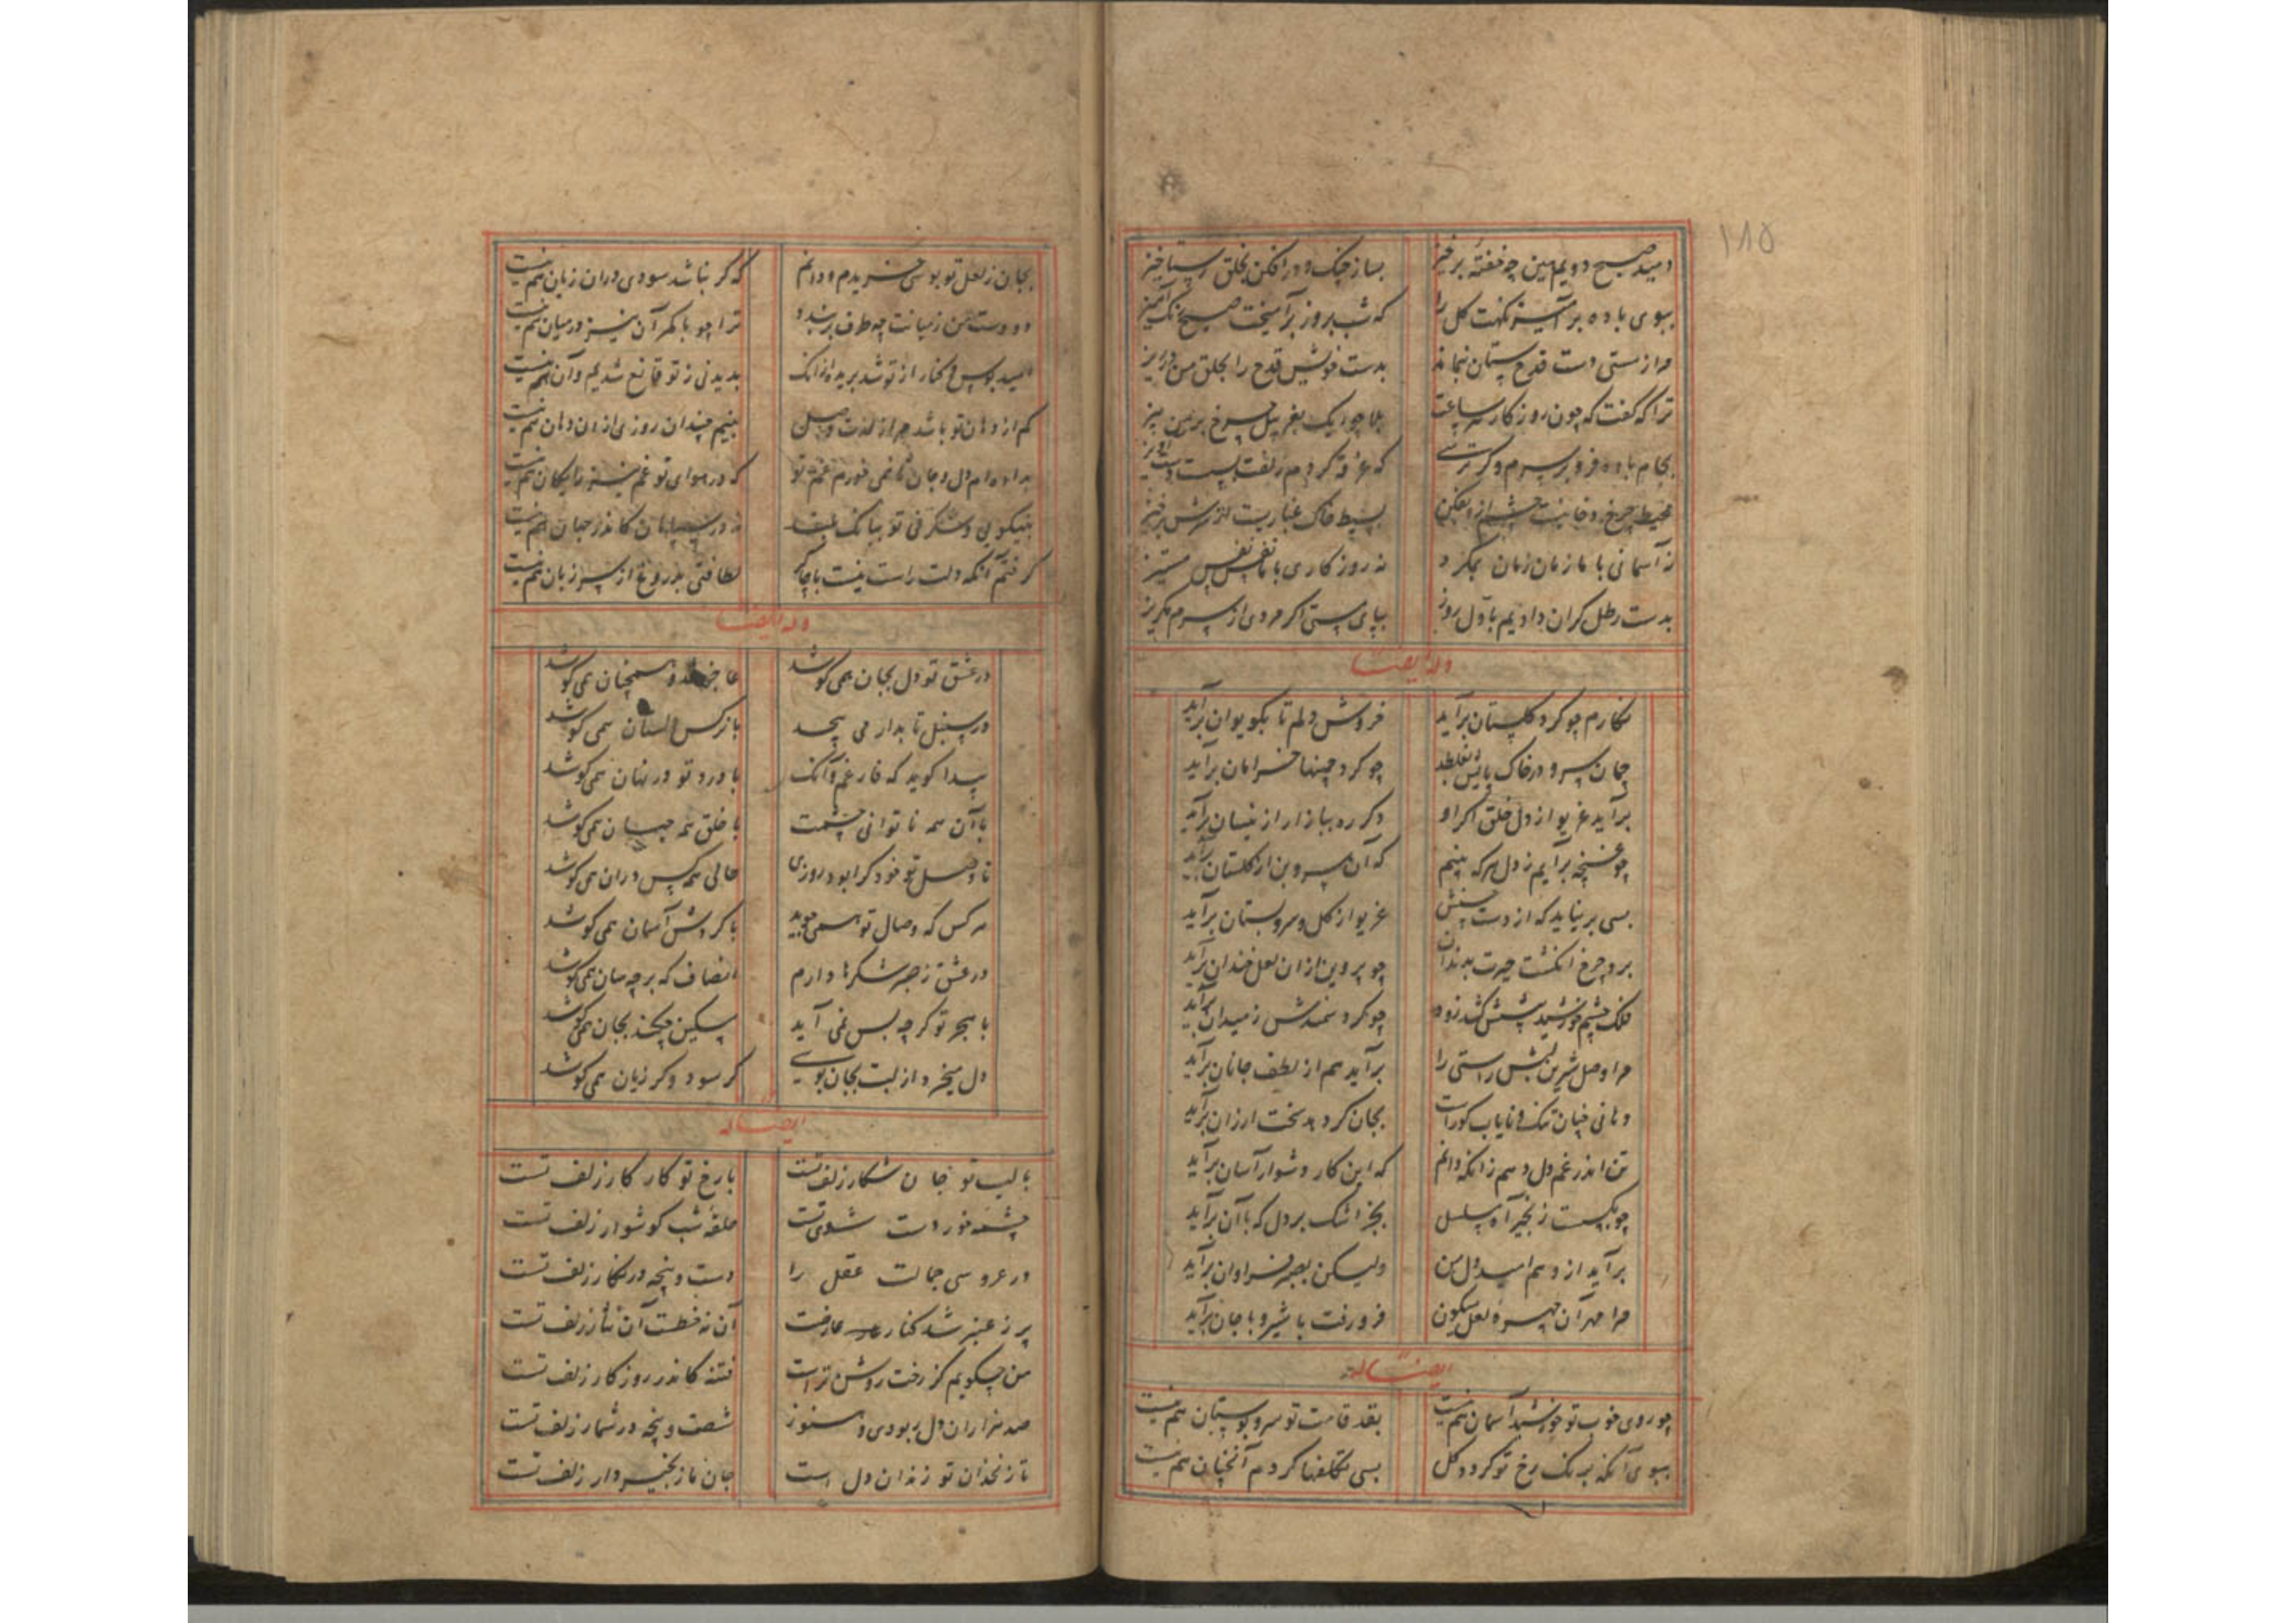 ۱۸۵
دمید صبح دویم هین چه خفتهٔ برخیز بساز چنک و درافکن بخلق رستاخیز
ببوی باده برآمیز نکهت کل را که شب بروز برآمیخت صبح رنک آمیز
مرا ز مستی دست قدح ستان نماند بدست خویش قدح را بحلق من در ریز
ترا که گفت که چون روزکار هر ساعت بلا چو ریک بغربیل چرخ بر من بیز
بجام باده فرو بر سرم و کر ترسی که غرقه کردم در زلفت دست آویز
محیط چرخ دخانیست چشم ازو بفکن بسیط خاک غباریست از سرش برخیز
نه آسمانی با ما زمان زمان بمکرد نه روزکاری با ما نفس نفس مستیز
بدست رطل کران دادیم باول روز بپای پستی اکر مردی از سرم مکریز
وله ایضا
نکارم چو کرد کلستان برآید خروش دلم تا بکویوان برآید
چمان سرو در خاک پایش بغلطد چو کرد چمنها خرامان برآید
برآید غریو از دل خلق اکر او دکر ره ببازار ازینسان برآید
چو غنچه برآیم ز دل هرکه بینم که آن سرو بن از کلستان برآید
بسی برنیاید که از دست حسنش غریو از کل و سرو بستان برآید
برد چرخ انکشت حیرت بدندان چو پروین از ان لعل خندان برآید
فلک چشم خورشید پیشش کشد زود چو کرد سمندش ز میدان برآید
مرا وصل شیرین لبش راستی را برآید هم از لطف جانان برآید
دهانی چنان تنک و نایاب کوراست بجان کر دهد سخت ارزان برآید
تن اندر غم دل دهم زانکه دانم که این کار دشوار آسان برآید
چو بکسست زنجیر آه مسلسل بجز اشک بر دل که با آن برآید
برآید ازو هم امید دل من ولیکن بصبر فراوان برآید
مرا مهر آن چهره لعل میکون فرو رفت با شیر و با جان برآید
ایضا له
چو روی خوب تو خورشید آسمان هم نیست بقد قامت تو سرو بوستان هم نیست
ببوی آنکه برنک رخ تو کردد کل بسی تکلفها کرد هم آنچنان هم نیست
بجان ز لعل تو بوسی خریدم و دانم که کر نباشد سودی دران زیان هم نیست
دو دست من ز میانت چه طرف بربندد ترا چو با کمر آن نیز در میان هم نیست
امید بوس و کنار از تو شد بریده ازانک بدیدنی ز تو قانع شدیم و آن هم نیست
کم از دهان تو باشد مرا ز لذت وصل ببینم چندان روزی ازان دهان هم نیست
بداده‌ام دل و جان تا نمی خورم غم تو که در هوای تو غم نیز رایکان هم نیست
بنیکویی و شکرفی تو ببانک بلند نه در سپاهان کاندر جهان هم نیست
کرفتم آنکه دلت راست نیست با چاکر لطافتی بدروغ از سر زبان هم نیست
وله ایضا
در عشق تو دل بجان همی کوشد عاجز شد و همچنان همی کوشد
در سنبل تابدار می پیچد با نرکس دلستان همی کوشد
پیدا کوید که فارغم و آنک با درد تو در نهان همی کوشد
با آن همه ناتوانی چشمت با خلق همه جهان همی کوشد
تا وصل تو خود کرا بود روزی حالی همه کس دران همی کوشد
هر کس که وصال تو همی جوید با کردش آسمان همی کوشد
در عشق ز صبر شکرها دارم انصاف که بر چه سان همی کوشد
با هجر تو کرچه بس نمی آید مسکین چکند بجان همی کوشد
دل میخرد از لبت بجان بوسی کر سود و کر زیان همی کوشد
ایضا له
با لب تو جان شکار زلف تست با رخ تو کار کار زلف تست
چشمه خور دست شوی تست حلقه شب کوشوار زلف تست
در عروسی جمالت عقل را دست و پنجه در نکار زلف تست
پر ز عنبر شد کنار عارضت آن نه خطست آن نثار زلف تست
من چکویم کز رخت روشن تراست فتنه کاندر روزکار زلف تست
صد هزاران دل ربودی و هنوز شصت و پنجه در شمار زلف تست
تا زنخدان تو زندان دل است جان ما زنجیردار زلف تست